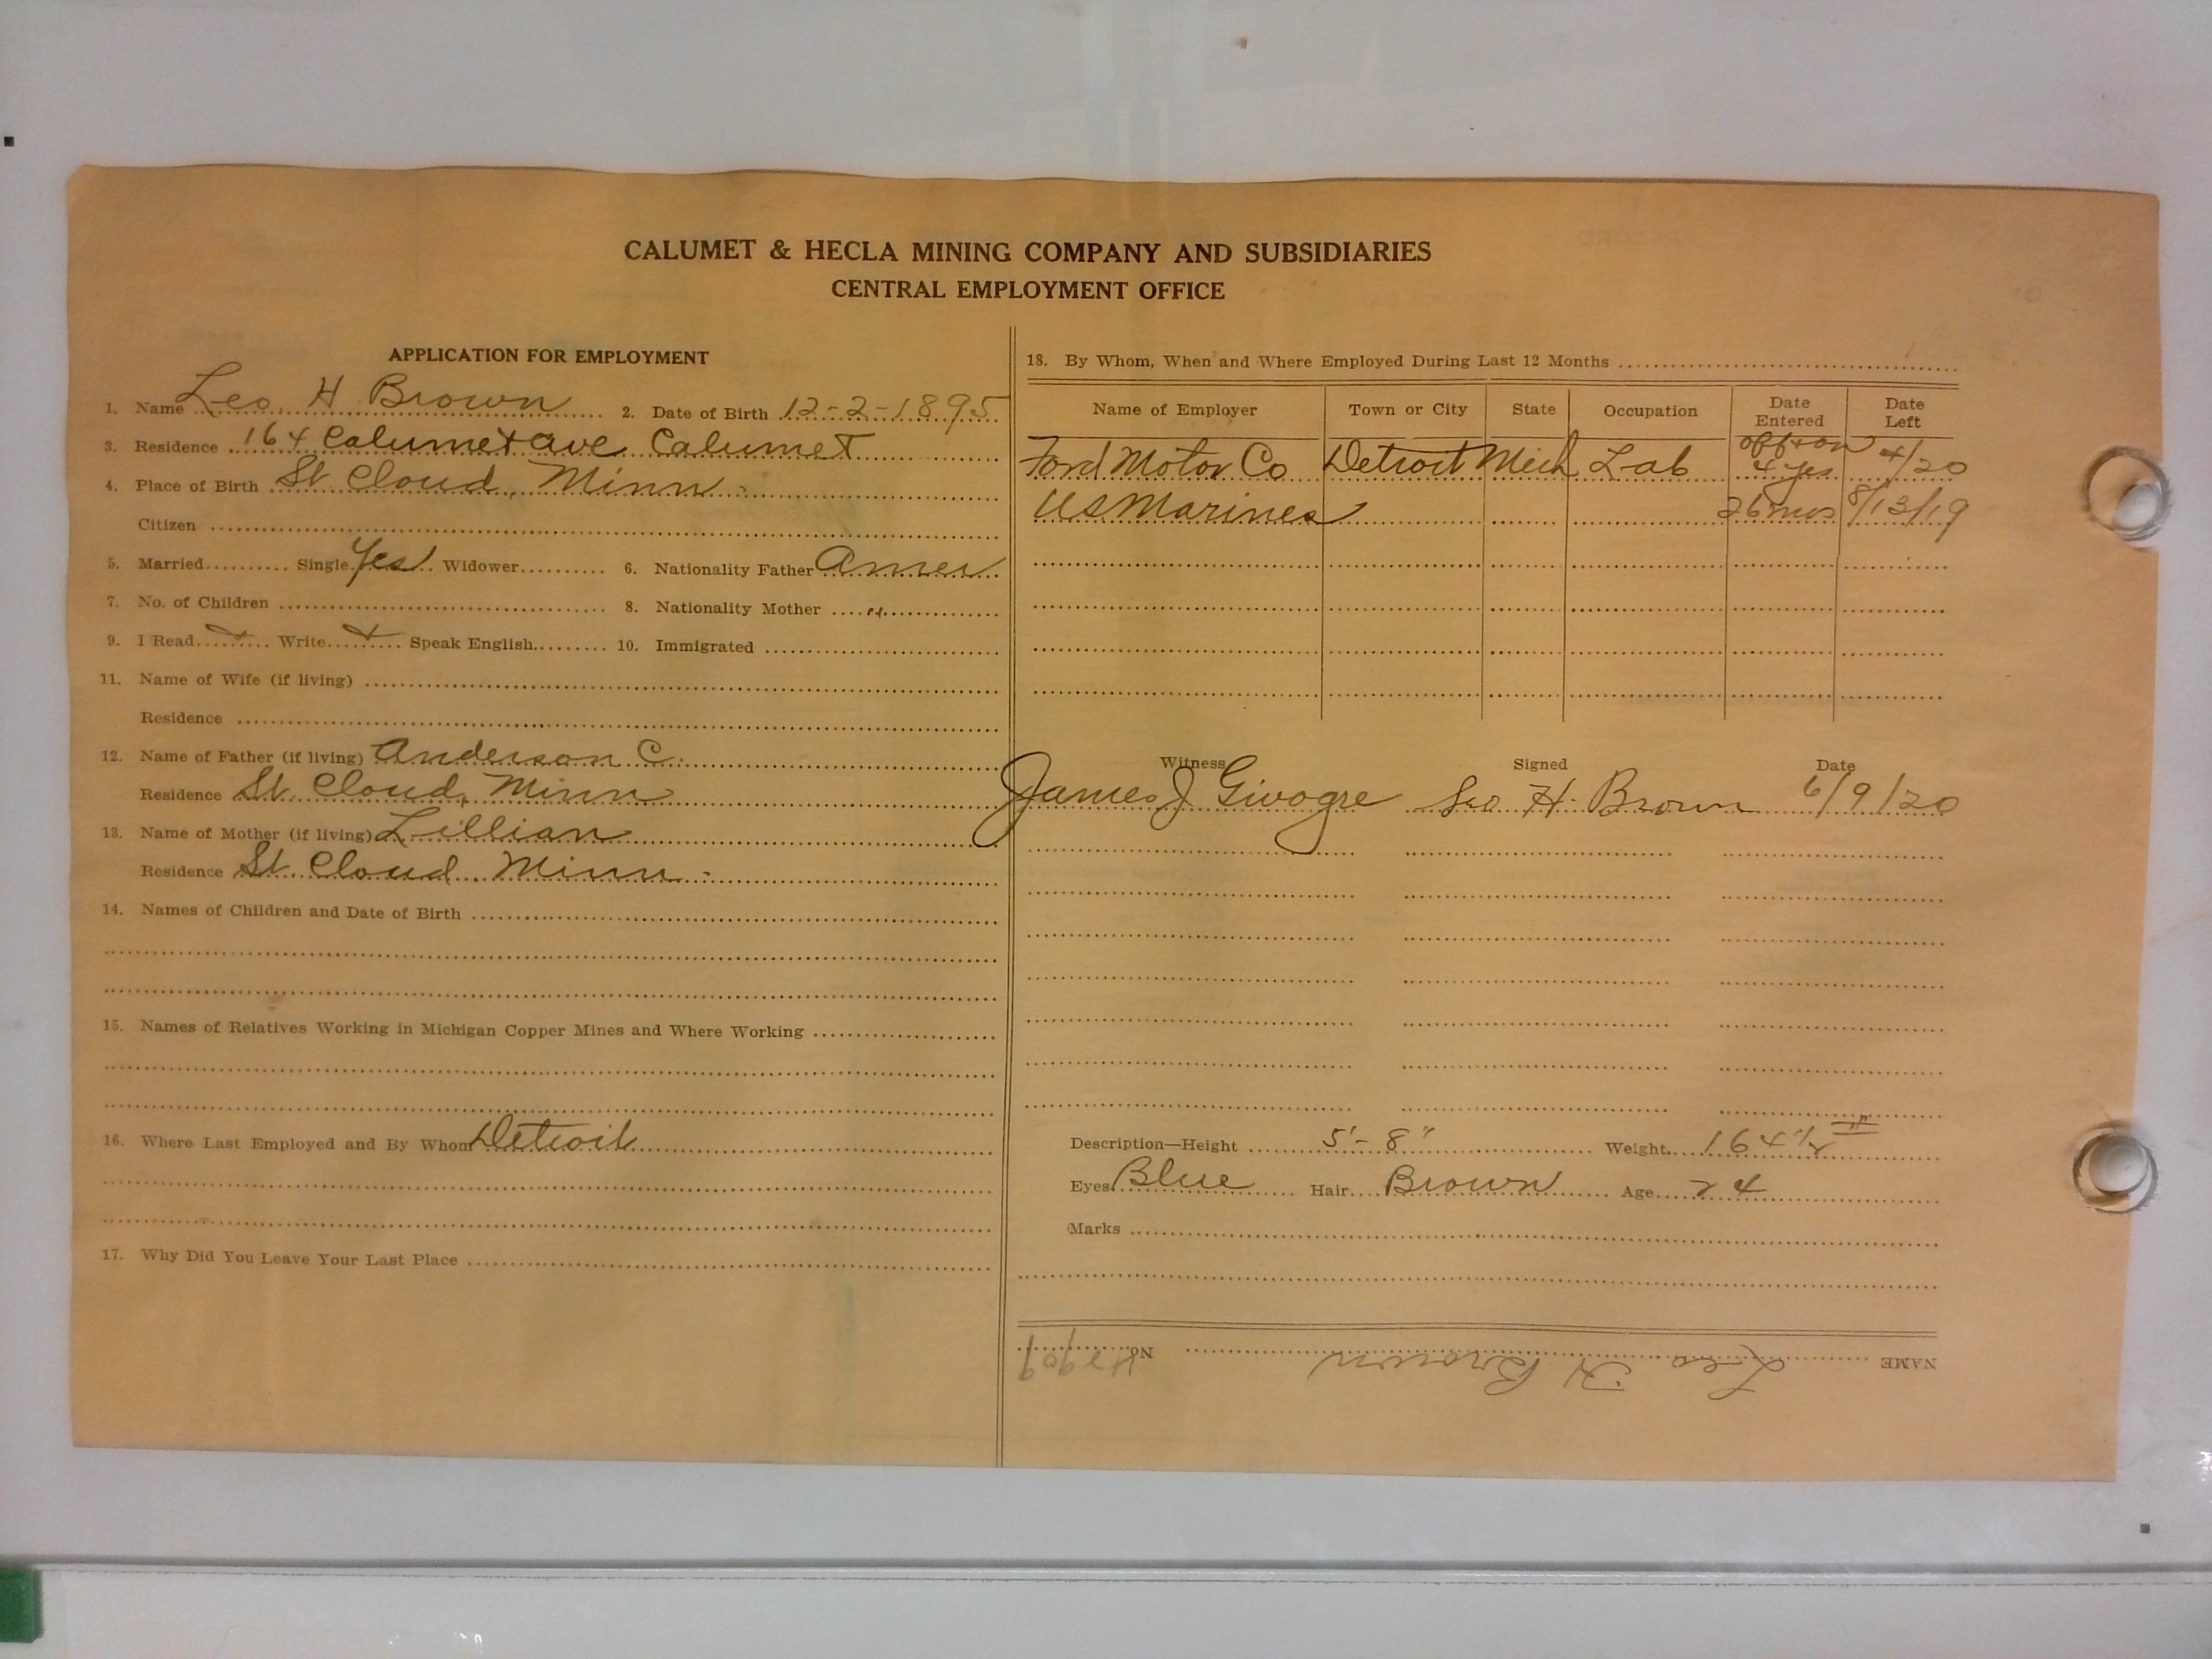 CALUMET & HECLA MINING COMPANY AND SUBSIDIARIES
CENTRAL EMPLOYMENT OFFICE
APPLICATION FOR EMPLOYMENT
1. Name Leo H Brown 2. Date of Birth 12-2-1895
3. Residence 164 Calumet ave Calumet
4. Place of Birth St Cloud, Minn.
Citizen
5. Married Single Yes Widower 6. Nationality Father Amer
7. No. of Children 8. Nationality Mother "
9. I Read Write Speak English 10. Immigrated
11. Name of Wife (if living)
Residence
12. Name of Father (if living) Anderson C.
Residence St. Cloud, Minn
13. Name of Mother (if living) Lillian
Residence St. Cloud. Minn.
14. Names of Children and Date of Birth
15. Names of Relatives Working in Michigan Copper Mines and Where Working
16. Where Last Employed and By Whom Detroit
17. Why Did You Leave Your Last Place
18. By Whom, When and Where Employed During Last 12 Months
Name of Employer Town or City State Occupation Date Entered Date Left
Ford Motor Co Detroit Mich Lab off + on 4 yrs 4/20
US Marines 26 mos 8/13/19
Witness Signed Date
James J Givogre Leo H. Brown 6/9/20
Description—Height 5'-8" Weight 164
Eyes Blue Hair Brown Age 24
Marks
NAME Leo H Brown No.